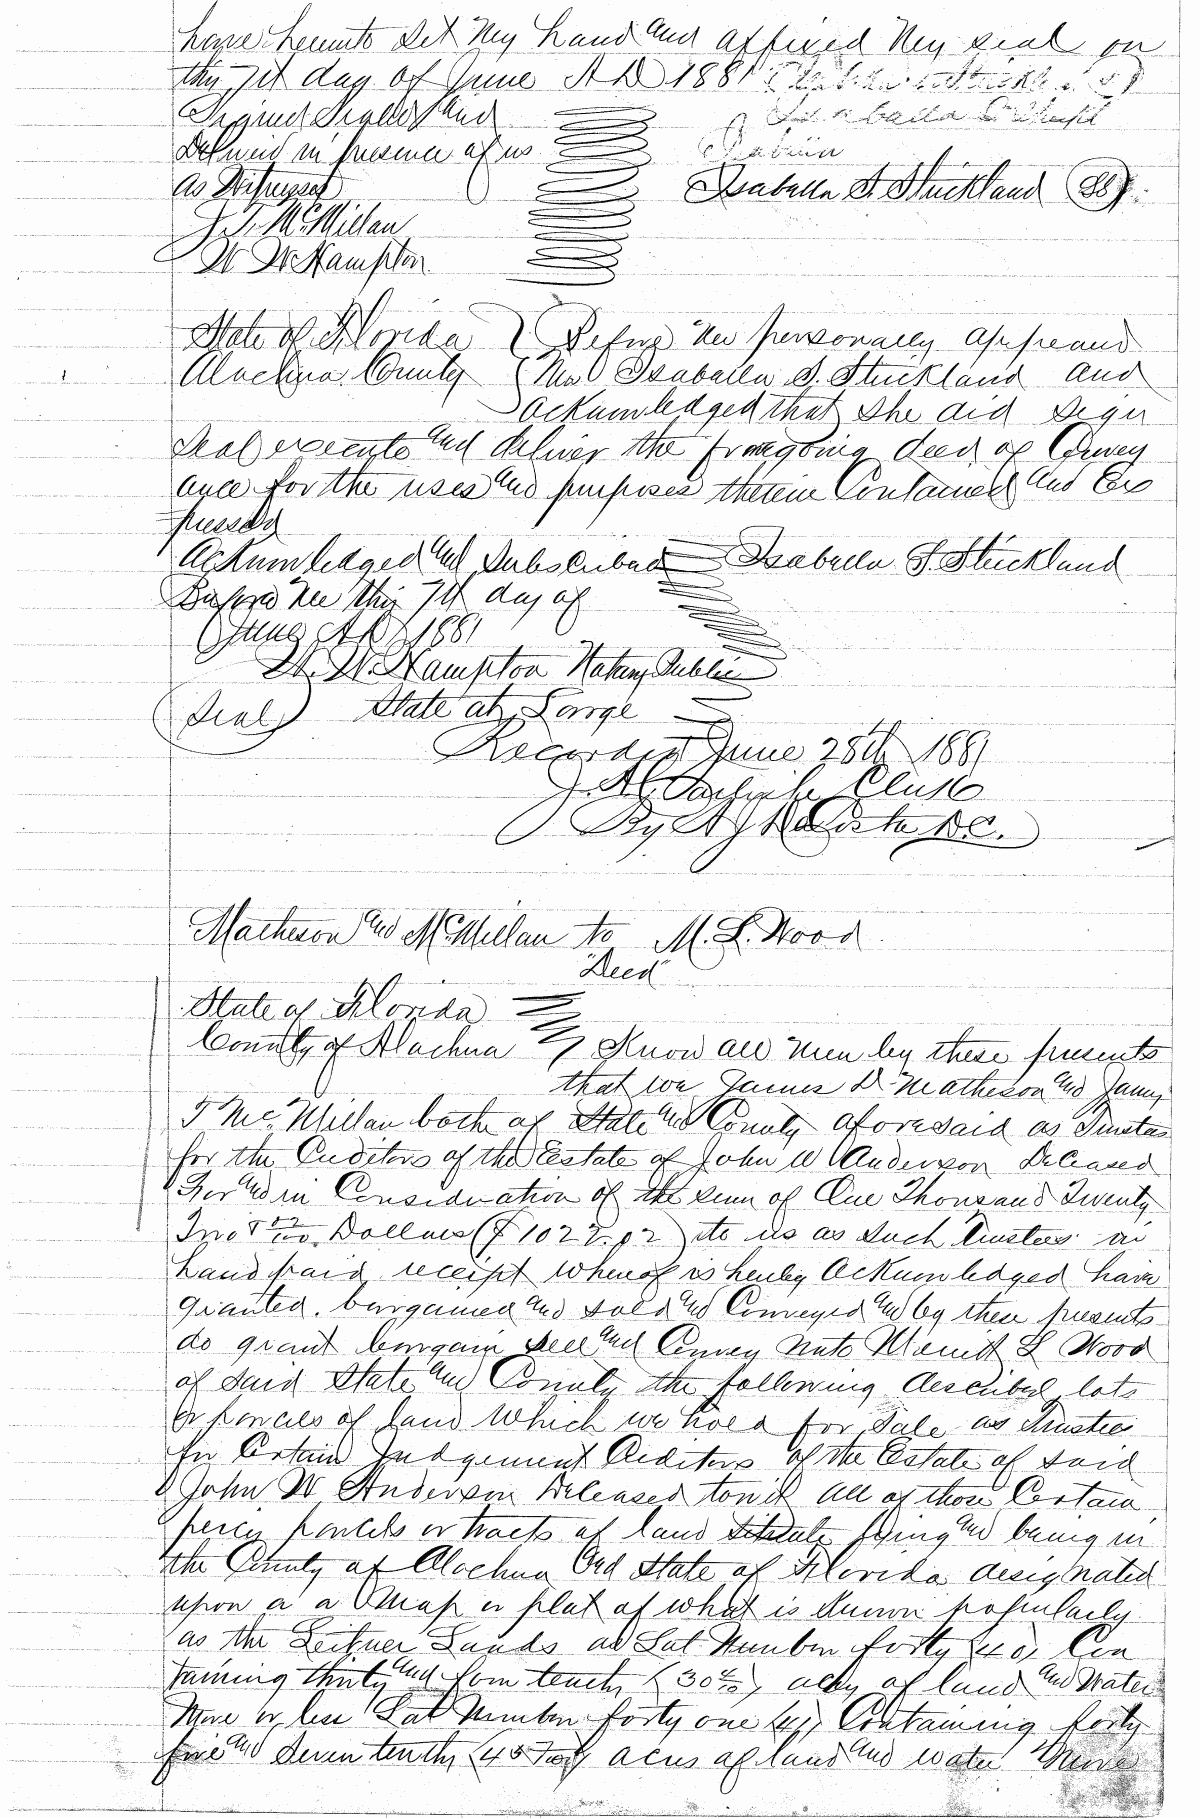 have hereunto set my hand and affixed my seal on
this 7th day of June A D 1881
Signed Sealed and
Delivered in presence of us
as Witnesses
Isabella S. Strickland (SS)
J. T. McMillan
W W Hampton
State of Florida } Before me personally appeared
Alachua County { Mrs Isabella S. Strickland and
acknowledged that she did sign
seal execute and deliver the foregoing deed of Convey
ance for the uses and purposes therein Contained and Ex
pressed
Acknowledged and Subscribed Isabella S. Strickland
Before me this 7th day of
June AD 1881
W. W. Hampton Notary Public
(Seal) State at Large
Recorded June 28th 1881
J. A. Carlisle Clerk
By A J DaCosta D.C.
Matheson and McMillan to M. L. Wood
"Deed"
State of Florida
County of Alachua } Know all men by these presents
that we James D Matheson and James
T McMillan both of State and County aforesaid as Trustees
for the Creditors of the Estate of John W Anderson Deceased
For and in Consideration of the sum of One Thousand Twenty
Two & 02/100 Dollars ($1022.02) to us as such Trustees in
hand paid receipt whereof is hereby acknowledged have
granted. bargained and sold and Conveyed and by these presents
do grant bargain sell and Convey unto Merritt L Wood
of said State and County the following described lots
or parcels of land which we hold for Sale as Trustees
for Certain Judgement Creditors of the Estate of said
John W Anderson Deceased towit all of those Certain
pieces parcels or tracts of land situate lying and being in
the County of Alachua and State of Florida designated
upon a a map or plat of what is known popularly
as the Leitner Lands as Lot Number forty (40) Con
taining thirty and four tenths (30 4/10) acres of land and water
more or less Lot Number forty one (41) Containing forty
five and seven tenths (45 7/10) acres of land and water more